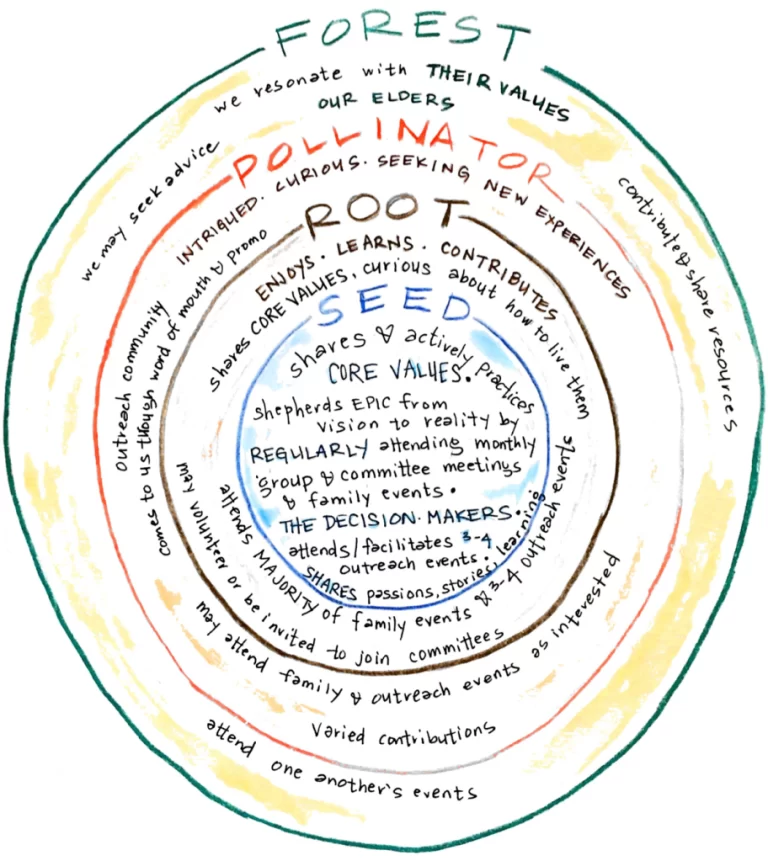 FOREST
we resonate with THEIR VALUES
OUR ELDERS
we may seek advice
contribute & share resources
attend one another's events
POLLINATOR
INTRIGUED. CURIOUS. SEEKING NEW EXPERIENCES
Outreach community
comes to us though word of mouth & promo
may attend family & outreach events as interested
Varied contributions
ROOT
ENJOYS. LEARNS. CONTRIBUTES
shares CORE VALUES, curious about how to live them
attends MAJORITY of family events & 3-4 outreach events
may volunteer or be invited to join committees
SEED
shares & actively practices
CORE VALUES.
shepherds EPIC from
vision to reality by
REGULARLY attending monthly
group & committee meetings
& family events.
THE DECISION MAKERS.
attends/facilitates 3-4
outreach events.
SHARES passions, stories, learning